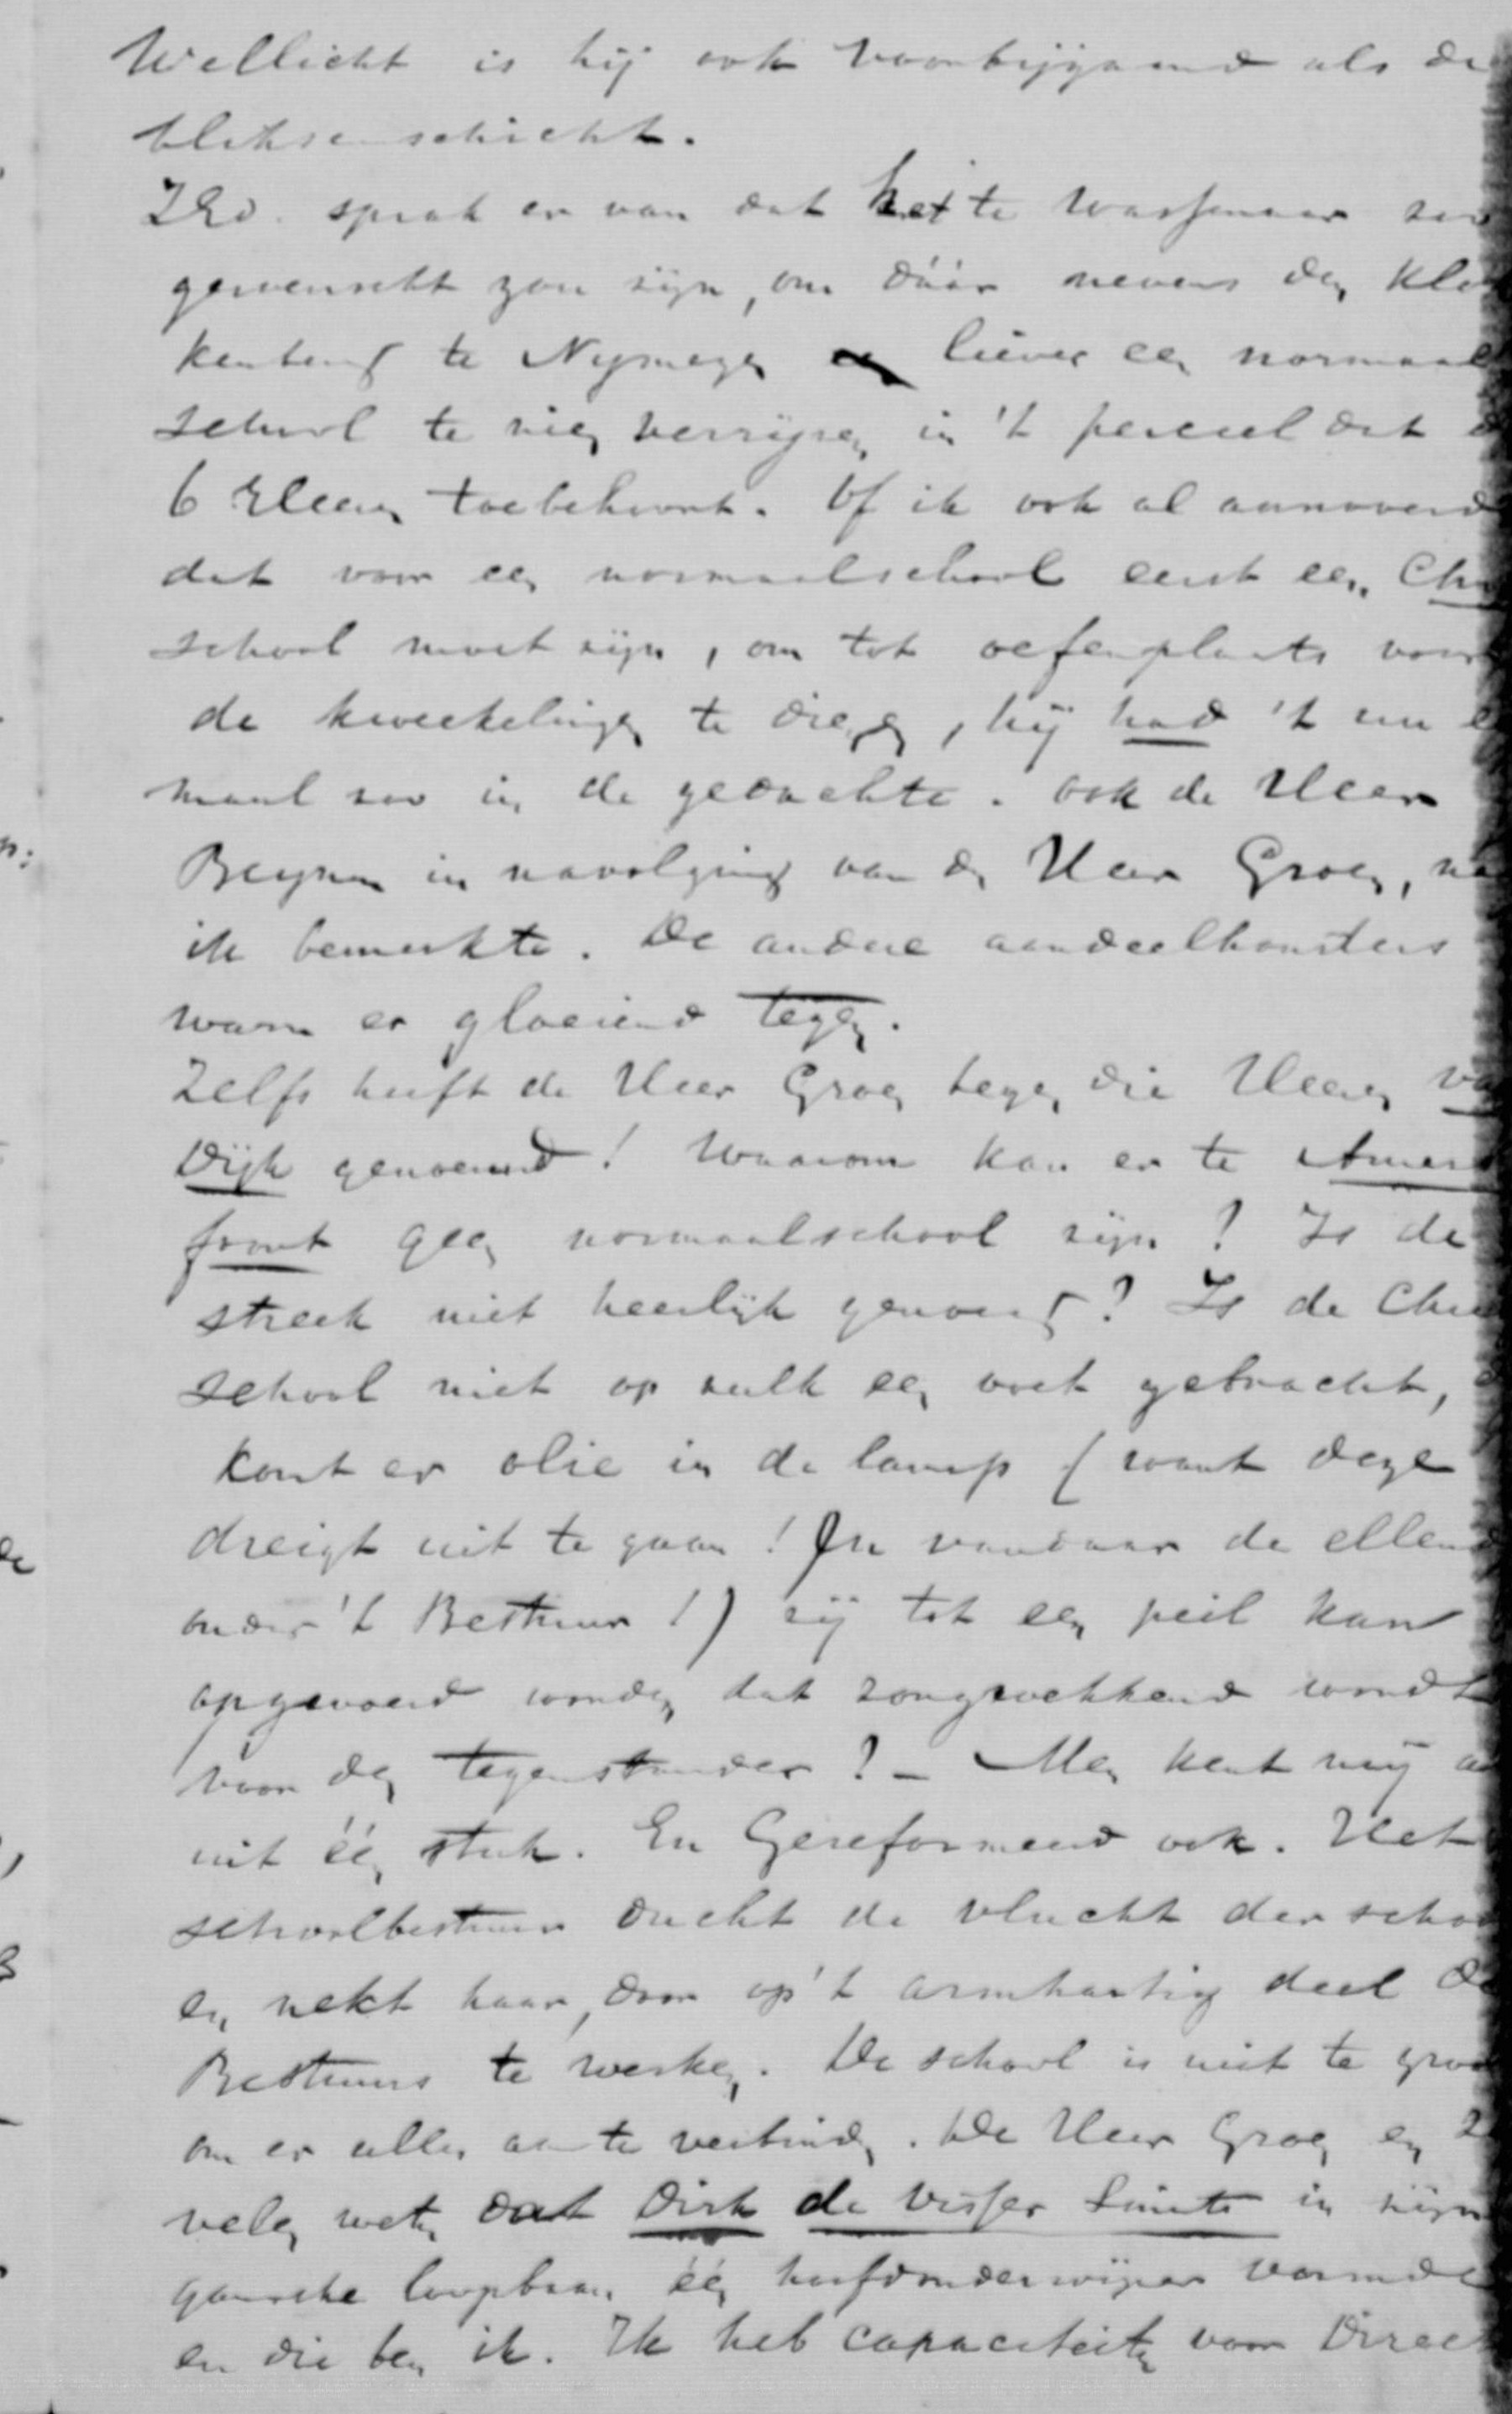 Wellicht is hij ook voorbijgaand als de
bliksemschicht.
ZEd. sprak er van dat het te Wassenaar zoo
gewenscht zou zijn, om dáár nevens den Klok
kenberg te Nymegen liever een normaal
school te zien verrijzen in 't perceel dat
6 Heeren toebehoort. Of ik ook al aanvoerde
dat voor een normaalschool eerst een Chr
school moet zijn, om tot oefenplaats voor
de kweekelingen te dienen, hij had 't nu e
maal zoo in de gedachte. Ook de Heer
Beynen in navolging van den Heer Groen, na
ik bemerkte. De andere aandeelhouders
waren er gloeiend tegen.
Zelfs heeft de Heer Groen tegen die Heeren va
Dijk genoemd! Waarom kan er te Amers
foort geen normaalschool zijn? Is de
streek niet heerlijk genoeg? Is de Chr
school niet op zulk een voet gebracht,
komt er olie in de lamp (want deze
dreigt uit te gaan! En vandaar de ellend
onder 't Bestuur!) zij tot een peil kan
opgevoerd worden dat zorgwekkend wordt
voor den tegenstander? — Men kent mij a
uit één stuk. En Gereformeerd ook. Het
schoolbestuur ducht de vlucht der schoo
en nekt haar, door op 't armhartig deel de
Bestuurs te werken. De school is niet te groo
om er alles aan te verbinden. De Heer Groen en Z
velen weten dat Dirk de Visser Smits in zijn
gansche loopbaan één hoofdonderwijzer vormde
en die ben ik. Ik heb capaciteiten voor Direct